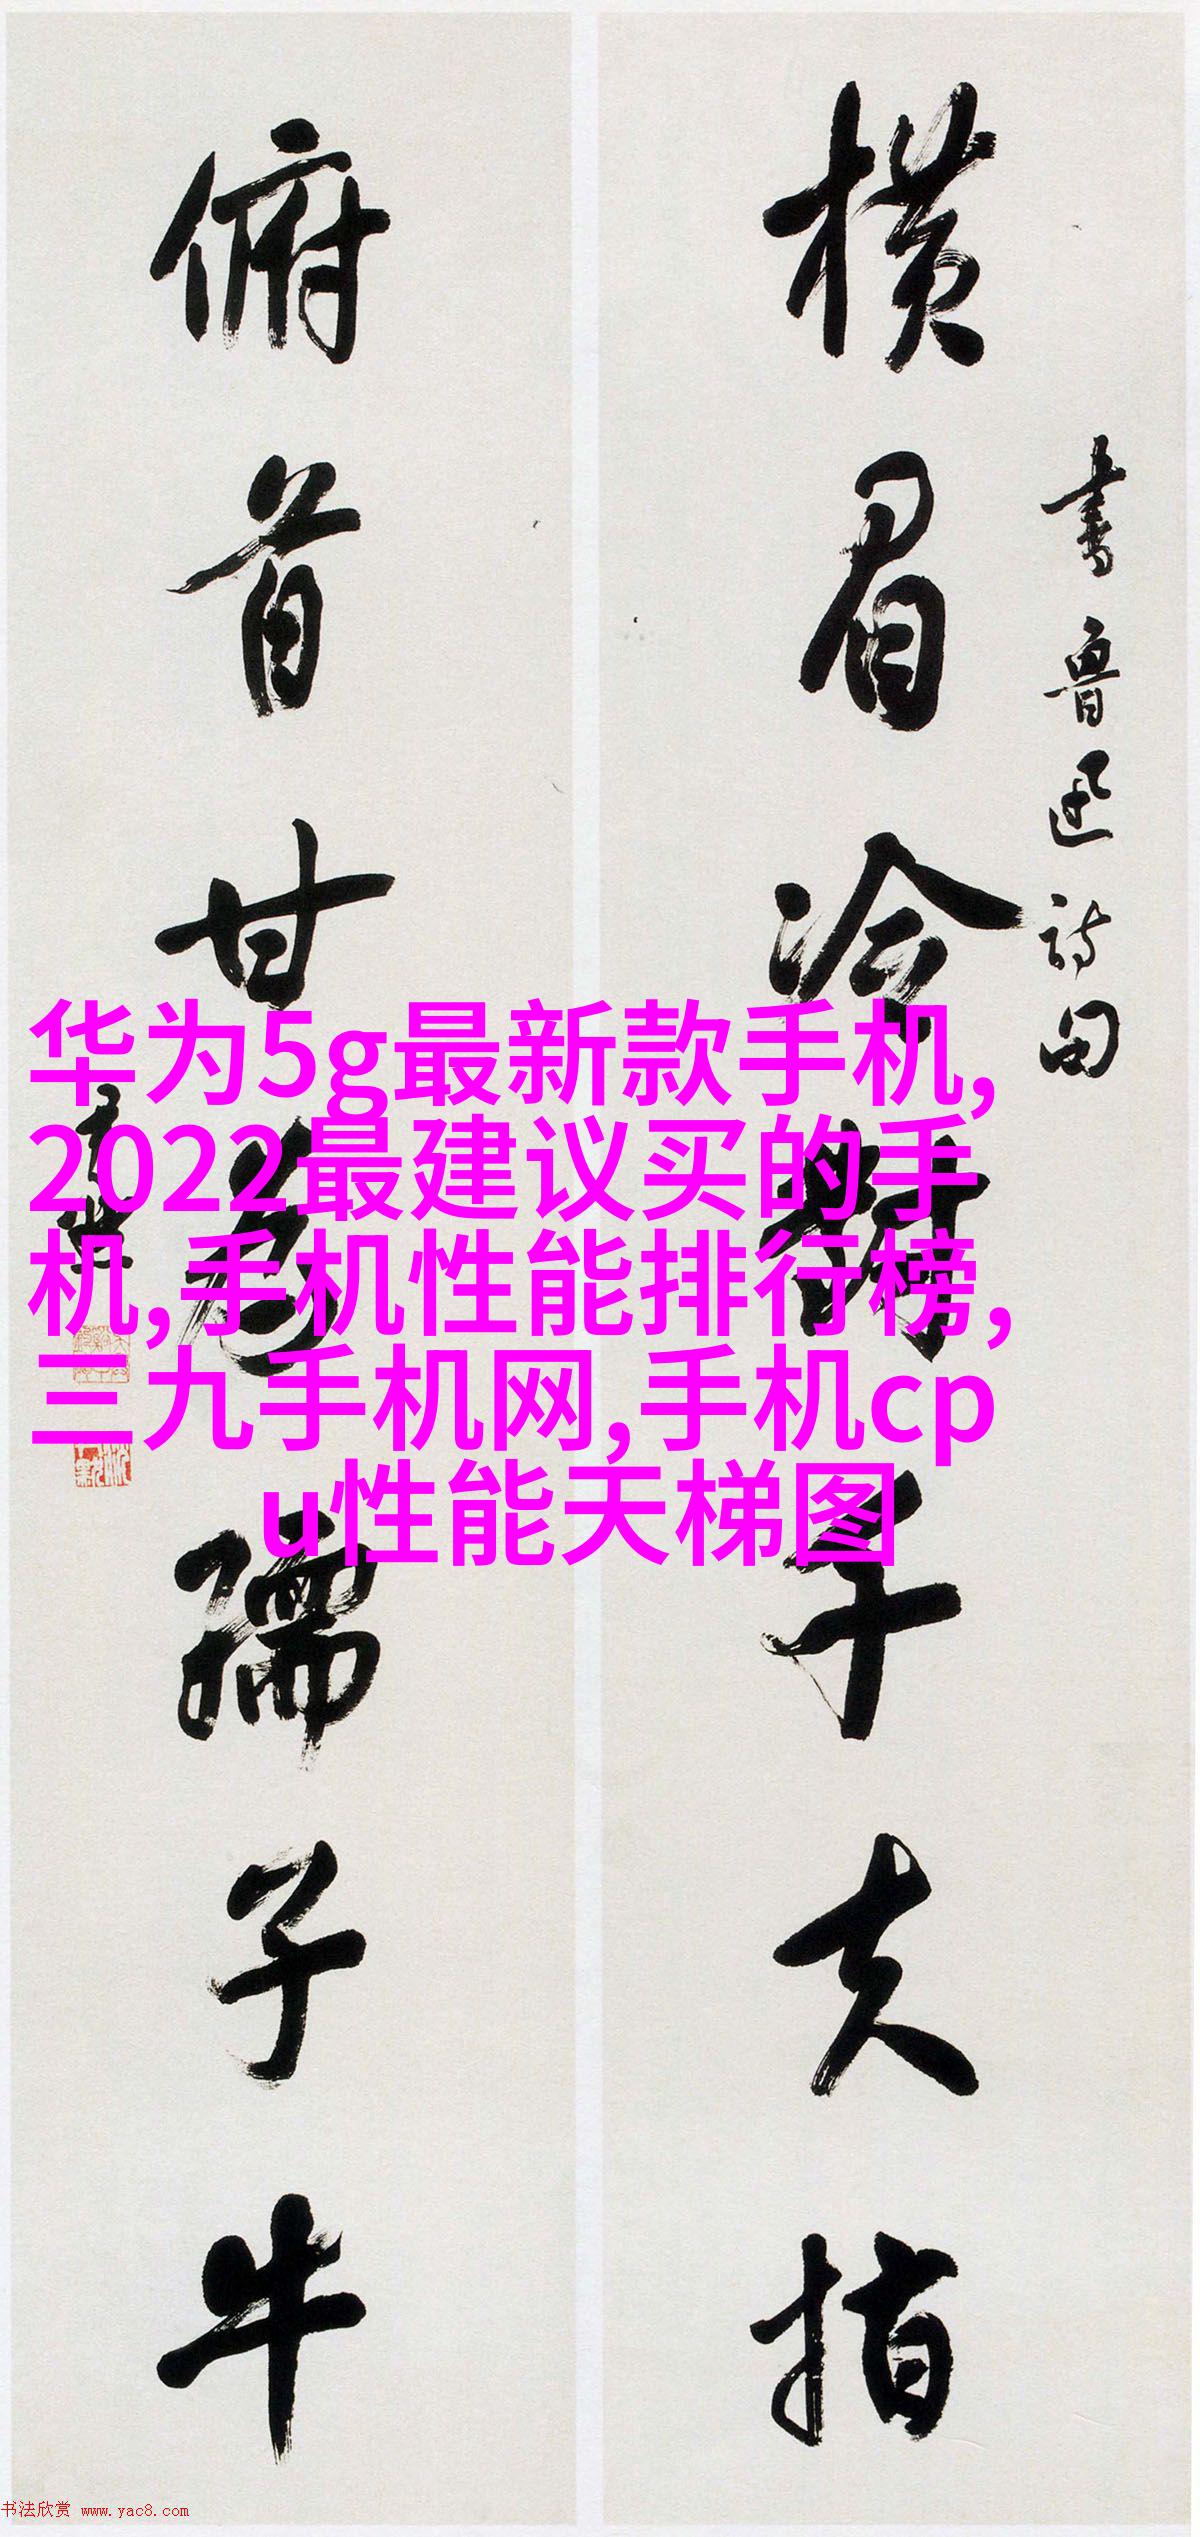 横眉冷對千夫指
書魯迅詩句
俯首甘為孺子牛
华为5g最新款手机,
2022最建议买的手
机,手机性能排行榜,
三九手机网,手机cp
u性能天梯图
书法欣赏 www.yac8.com